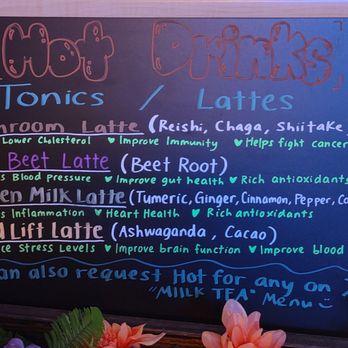 Hot Drinks
Tonics / Lattes
hroom Latte (Reishi, Chaga, Shiitake
Lower Cholesterol ♥ Improve Immunity ♥ Helps fight cancer
Beet Latte (Beet Root)
s Blood Pressure ♥ Improve gut health ♥ Rich antioxidants
en Milk Latte (Tumeric, Ginger, Cinnamon, Pepper, Co
s Inflammation ♥ Heart Health ♥ Rich antioxidants
d Lift Latte (Ashwaganda, Cacao)
ce Stress Levels ♥ Improve brain function ♥ Improve blood
an also request Hot for any on
"MIILK TEA" Menu